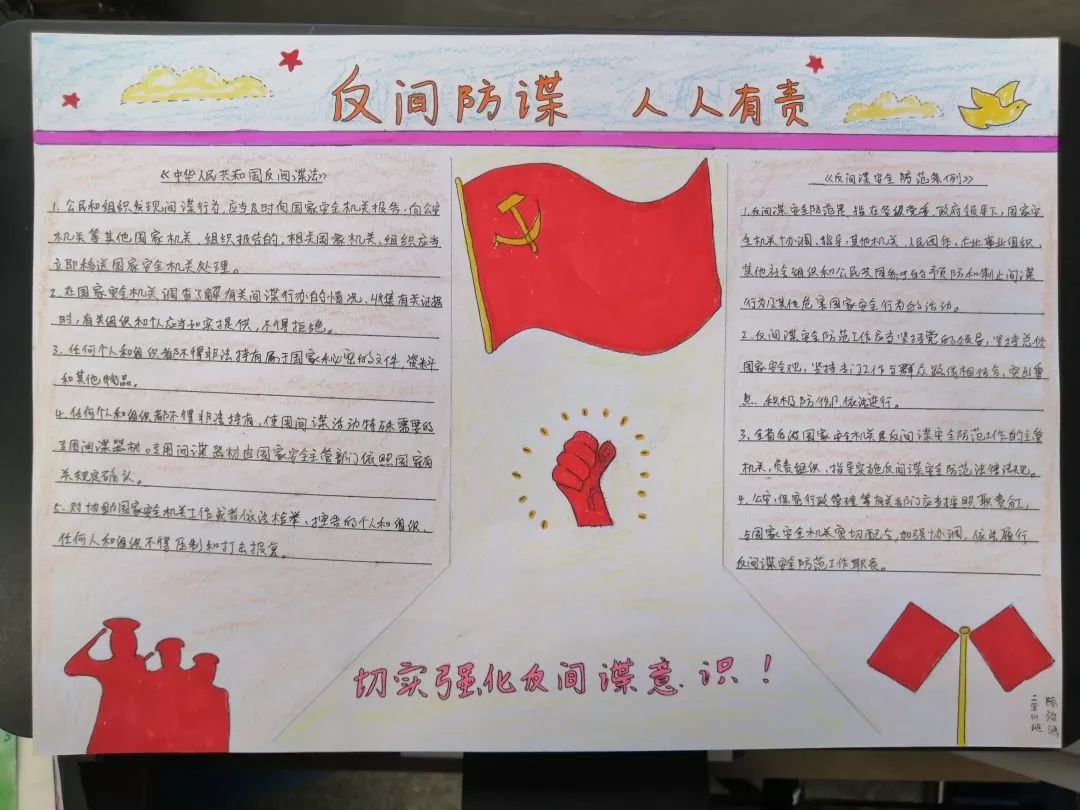 反间防谍 人人有责
《中华人民共和国反间谍法》
1. 公民和组织发现间谍行为,应当及时向国家安全机关报告;向公安
机关等其他国家机关、组织报告的,相关国家机关、组织应当
立即移送国家安全机关处理。
2. 在国家安全机关调查了解有关间谍行为的情况、收集有关证据
时,有关组织和个人应当如实提供,不得拒绝。
3. 任何个人和组织都不得非法持有属于国家秘密的文件,资料
和其他物品。
4. 任何个人和组织都不得非法持有、使用间谍活动特殊需要的
专用间谍器材。专用间谍器材由国家安全主管部门依照国家有
关规定确认。
5. 对协助国家安全机关工作或者依法检举、控告的个人和组织,
任何人和组织不得压制和打击报复。
《反间谍安全防范条例》
1. 反间谍安全防范是指在各级党委、政府领导下,国家安
全机关协调、指导,其他机关、人民团体、企业事业组织、
其他社会组织和公民共同参与的预防和制止间谍
行为及其他危害国家安全行为的活动。
2. 反间谍安全防范工作应当坚持党的领导,坚持总体
国家安全观,坚持专门工作与群众路线相结合,突出重
点、积极防御、依法进行。
3. 全省各级国家安全机关是反间谍安全防范工作的主管
机关,负责组织、指导实施反间谍安全防范法律法规。
4. 公安、保密行政管理等有关部门应当按照职责分工,
与国家安全机关密切配合,加强协调,依法履行
反间谍安全防范工作职责。
切实强化反间谍意识!